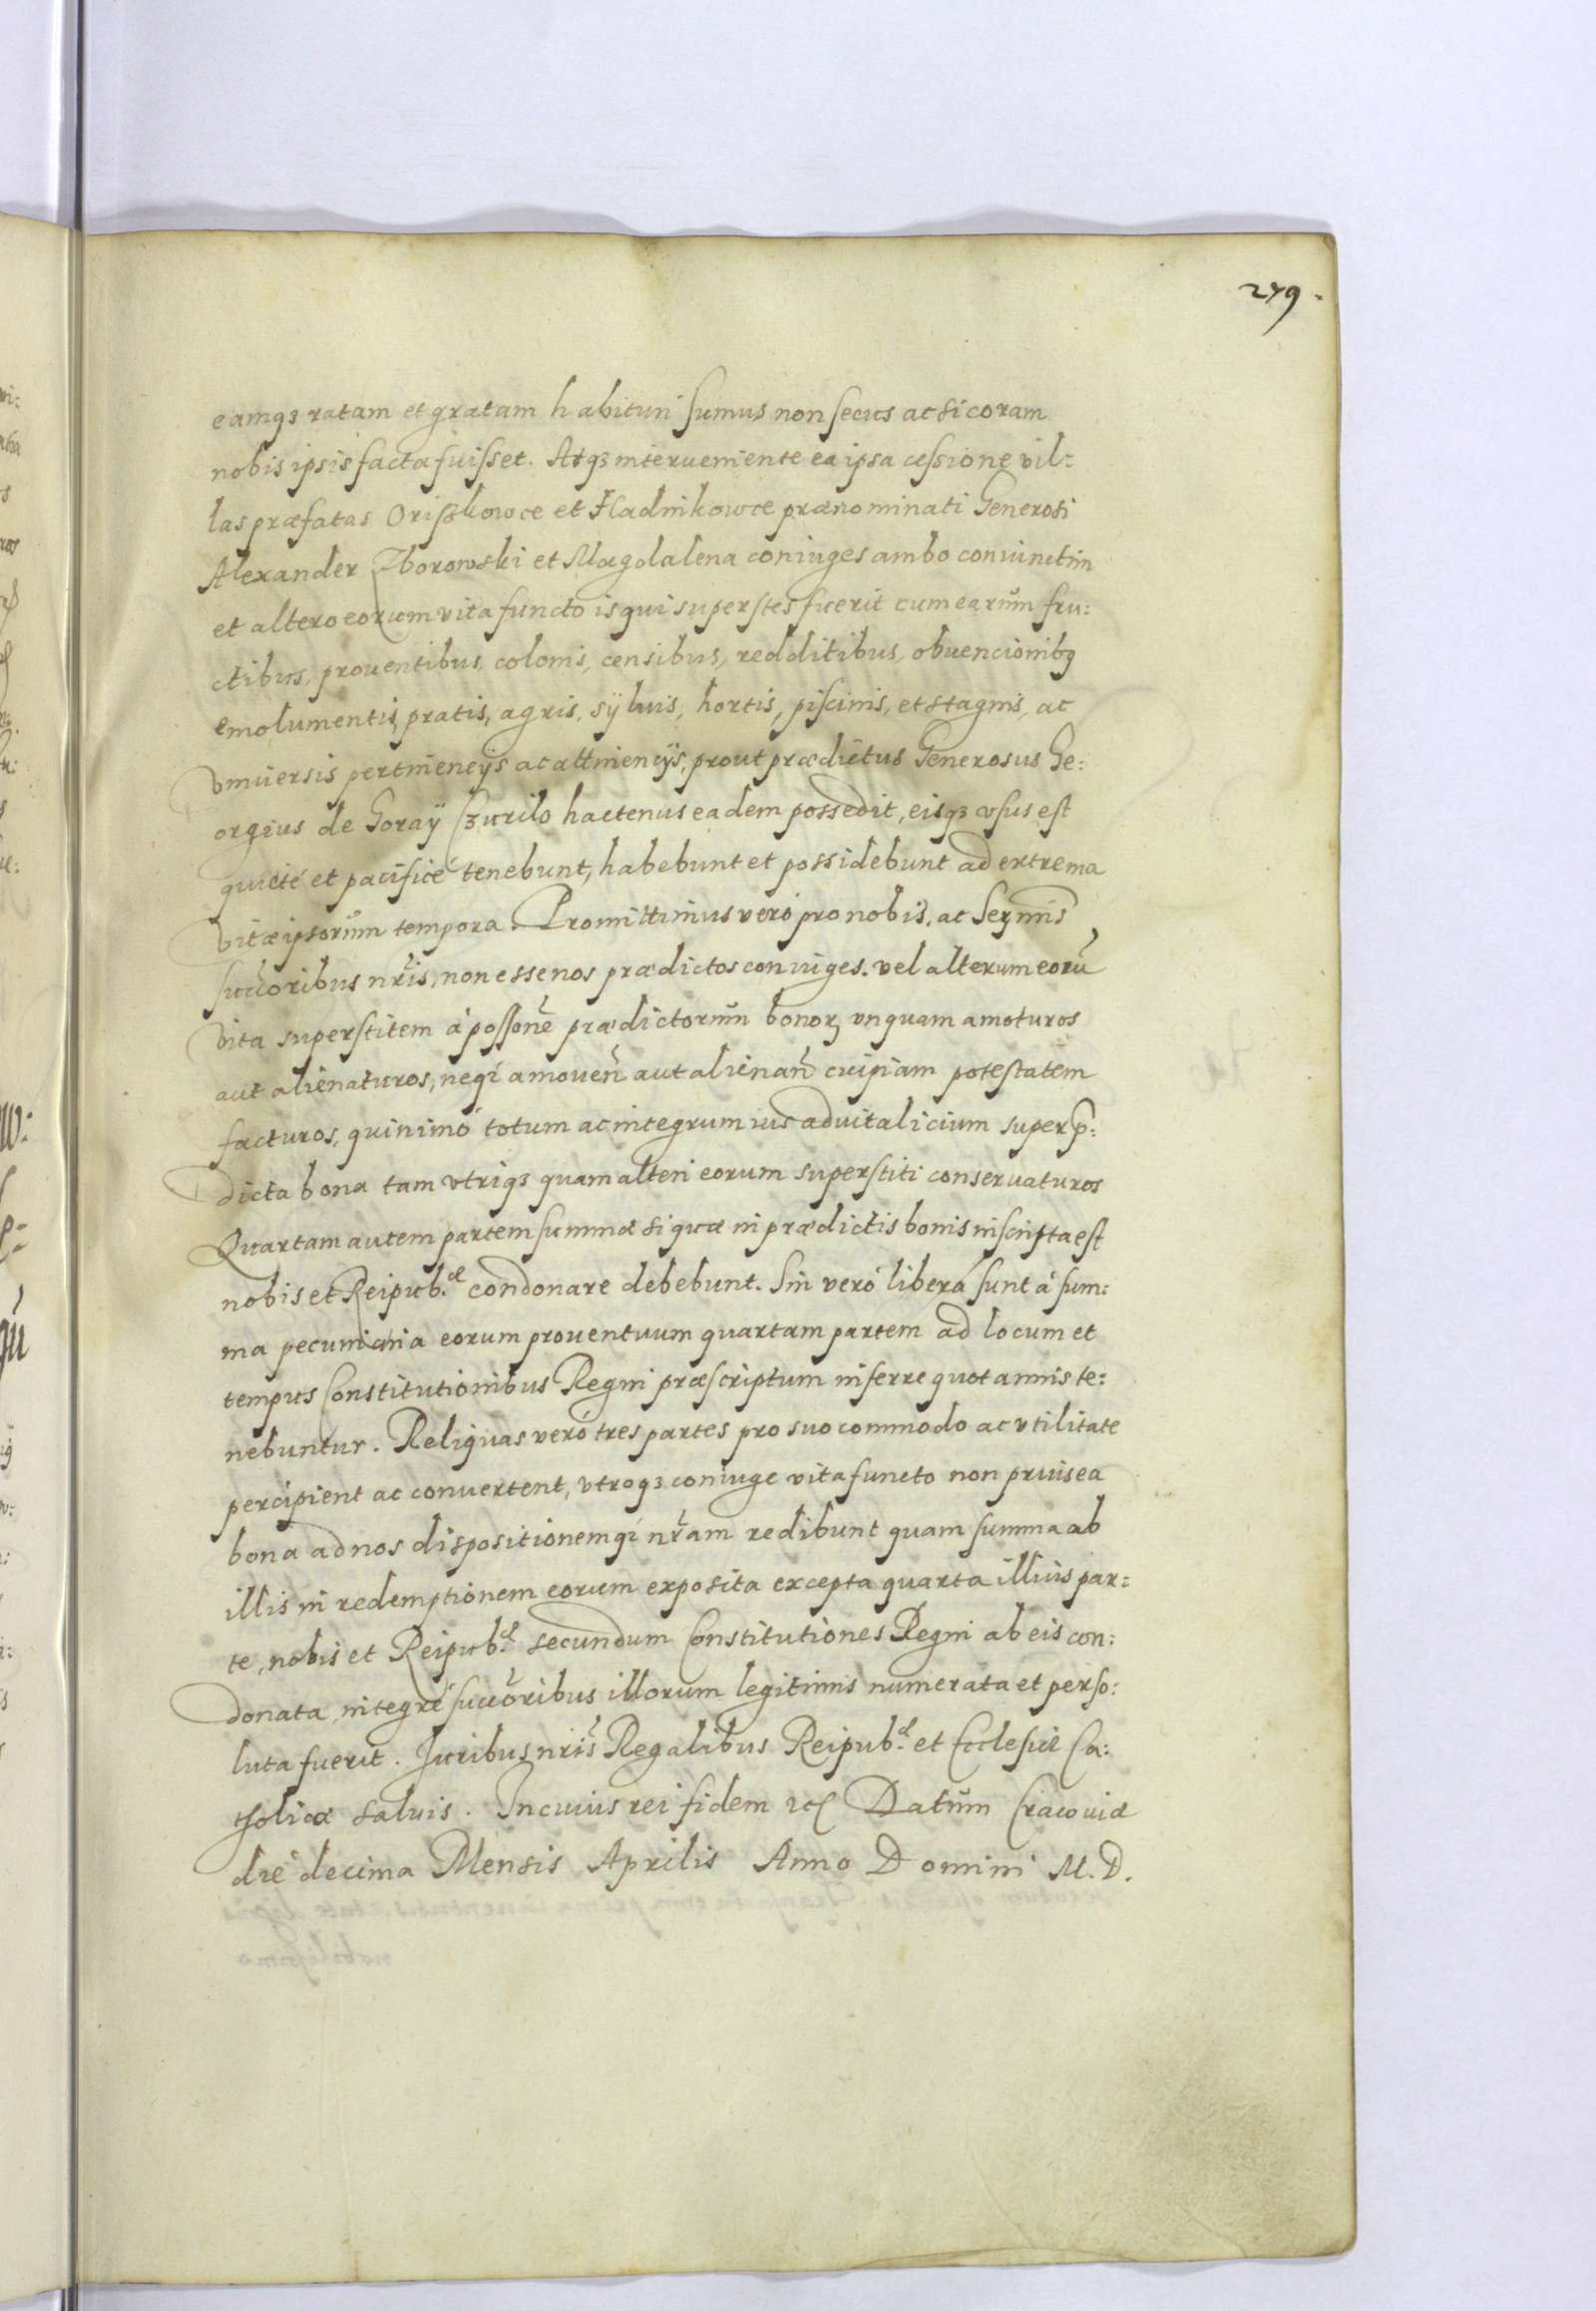 279.
eamqȝ ratam et gratam habituri sumus non secus ac si coram
nobis ipsis facta fuisset. Atqȝ interueniente ea ipsa cessione vil:
las præfatas Oriszkowce et Hladnikowce prænominati Generosi
Alexander Zborowski et Magdalena coniuges ambo coniunctim
et altero eorum vita functo is qui superstes fuerit cum earum fru:
ctibus, prouentibus, colonis, censibus, redditibus, obuencionibꝯ
emolumentis, pratis, agris, syluis, hortis, piscinis, et stagnis, ac
vniuersis pertinencijs ac attinencijs, prout prædictus Generosus Ge:
orgius de Goraÿ Czurilo hactenus eadem possedit, eisqȝ vsus est
quietè et pacificè tenebunt, habebunt et possidebunt ad extrema
vitæ ipsorum tempora. Promittimus verò pro nobis, ac Sermis
succoribus nris, non esse nos prædictos coniuges vel alterum eorū
vita superstitem à possone prædictorum bonoꝝ vnquam amoturos
aut alienaturos, neqȝ amouen aut alienan cuipiam potestatem
facturos, quinimò totum ac integrum ius aduitalicium super p:
dicta bona tam vtriqȝ quam alteri eorum superstiti conseruaturos
Quartam autem partem summæ si quæ in prædictis bonis inscripta est
nobis et Reipub.æ condonare debebunt. Sin verò libera sunt à sum:
ma pecuniaria eorum prouentuum quartam partem ad locum et
tempus Constitutionibus Regni præscriptum inferre quotannis te:
nebuntur. Reliquas verò tres partes pro suo commodo ac vtilitate
percipient ac conuertent, vtroqȝ coniuge vita functo non prius ea
bona ad nos dispositionemqȝ nram redibunt quam summa ab
illis in redemptionem eorum exposita excepta quarta illius par:
te, nobis et Reipub.æ secundum Constitutiones Regni ab eis con:
donata, integrè succoribus illorum legitimis numerata et perso:
luta fuerit. Iuribus nris Regalibus Reipub.æ et Ecclesiæ Ca:
tholicæ saluis. In cuius rei fidem etc Datum Cracouiæ
die decima Mensis Aprilis Anno Domini M.D.